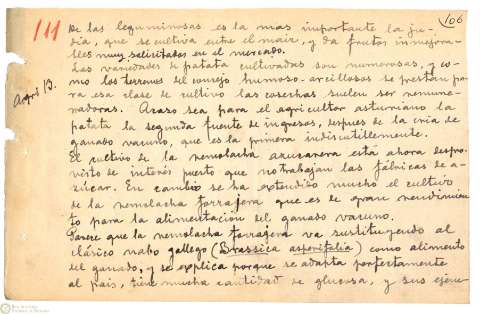 106
111
De las leguminosas es la mas importante la ju-
dia, que se cultiva entre el maiz, y da frutos inmejora-
bles muy solicitados en el mercado.
Las variedades de patata cultivadas son numerosas, y co-
mo los terrenos del concejo humoso-arcillosos se prestan pa-
ra esa clase de cultivo las cosechas suelen ser remune-
radoras. Acaso sea para el agricultor asturiano la
patata la segunda fuente de ingresos, despues de la cria de
ganado vacuno, que es la primera indiscutiblemente.
El cultivo de la remolacha azucarera está ahora despro-
visto de interés puesto que no trabajan las fábricas de a-
zúcar. En cambio se ha extendido mucho el cultivo
de la remolacha forrajera que es de gran rendimien-
to para la alimentación del ganado vacuno.
Parece que la remolacha forrajera va sustituyendo al
clásico nabo gallego (Brassica asperifolia) como alimento
del ganado, y se explica porque se adapta perfectamente
al pais, tiene mucha cantidad de glucosa, y sus ejem-